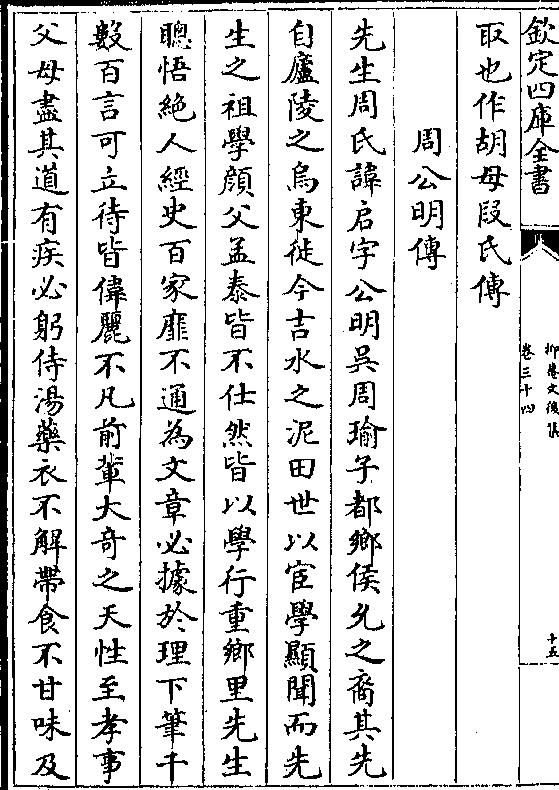 欽定四庫全書
抑菴文後集
卷三十四
十五
取也作胡母段氏傳
周公明傳
先生周氏諱启字公明吳周瑜子都鄉侯允之裔其先
自廬陵之烏東徙今吉水之泥田世以宦學顯聞而先
生之祖學顔父孟泰皆不仕然皆以學行重鄉里先生
聰悟絶人經史百家靡不通為文章必據於理下筆千
數百言可立待皆偉麗不凡前輩大奇之天性至孝事
父母盡其道有疾必躬侍湯藥衣不解帶食不甘味及